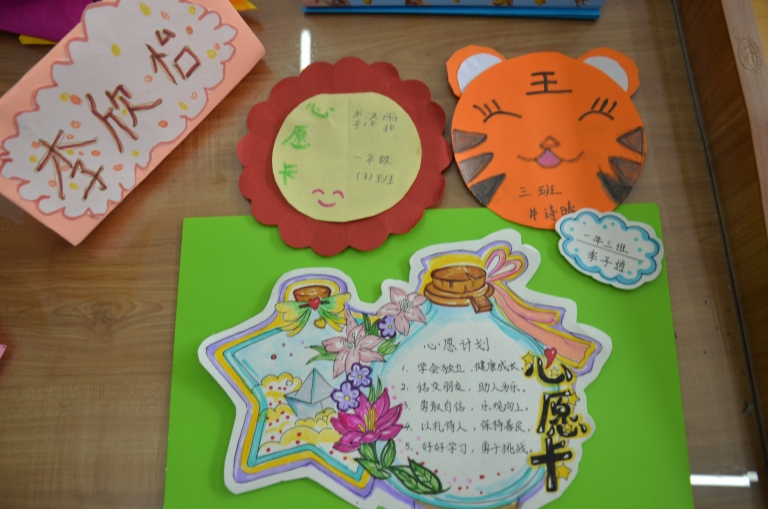 李欣怡
心愿卡
一年级
(3)班
王
三班
一年三班
心愿计划
1、学会独立,健康成长。
2、结交朋友,助人为乐。
3、勇敢自信,乐观向上。
4、以礼待人,保持善良。
5、好好学习,勇于挑战。
心愿卡